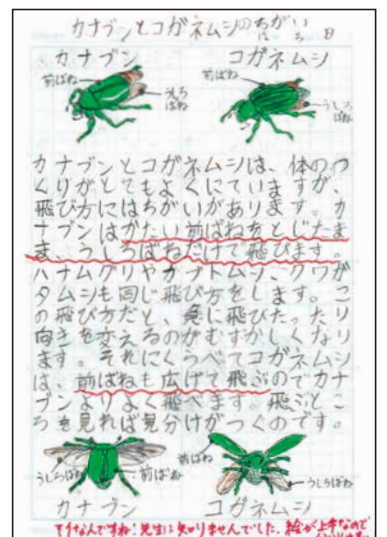 カナブンとコガネムシのちがい
カナブン
コガネムシ
前ばね
うしろ
ばね
前ばね
うしろ
ばね
カナブンとコガネムシは、体のつ
くりがとてもよくにていますが、
飛び方にはちがいがあります。カ
ナブンはかたい前ばねをとじたま
ま、うしろばねだけで飛びます。
ハナムグリやカブトムシ、クワガ
タムシも同じ飛び方をします。こ
の飛び方だと、急に飛びたったり
向きを変えるのがむずかしくなり
ます。それにくらべてコガネムシ
は、前ばねも広げて飛ぶのでカナ
ブンよりよく飛べます。飛ぶとこ
ろを見れば見分けがつくのです。
うしろばね
前ばね
前ばね
うしろばね
カナブン
コガネムシ
そうなんですね!先生は知りませんでした。絵が上手なので